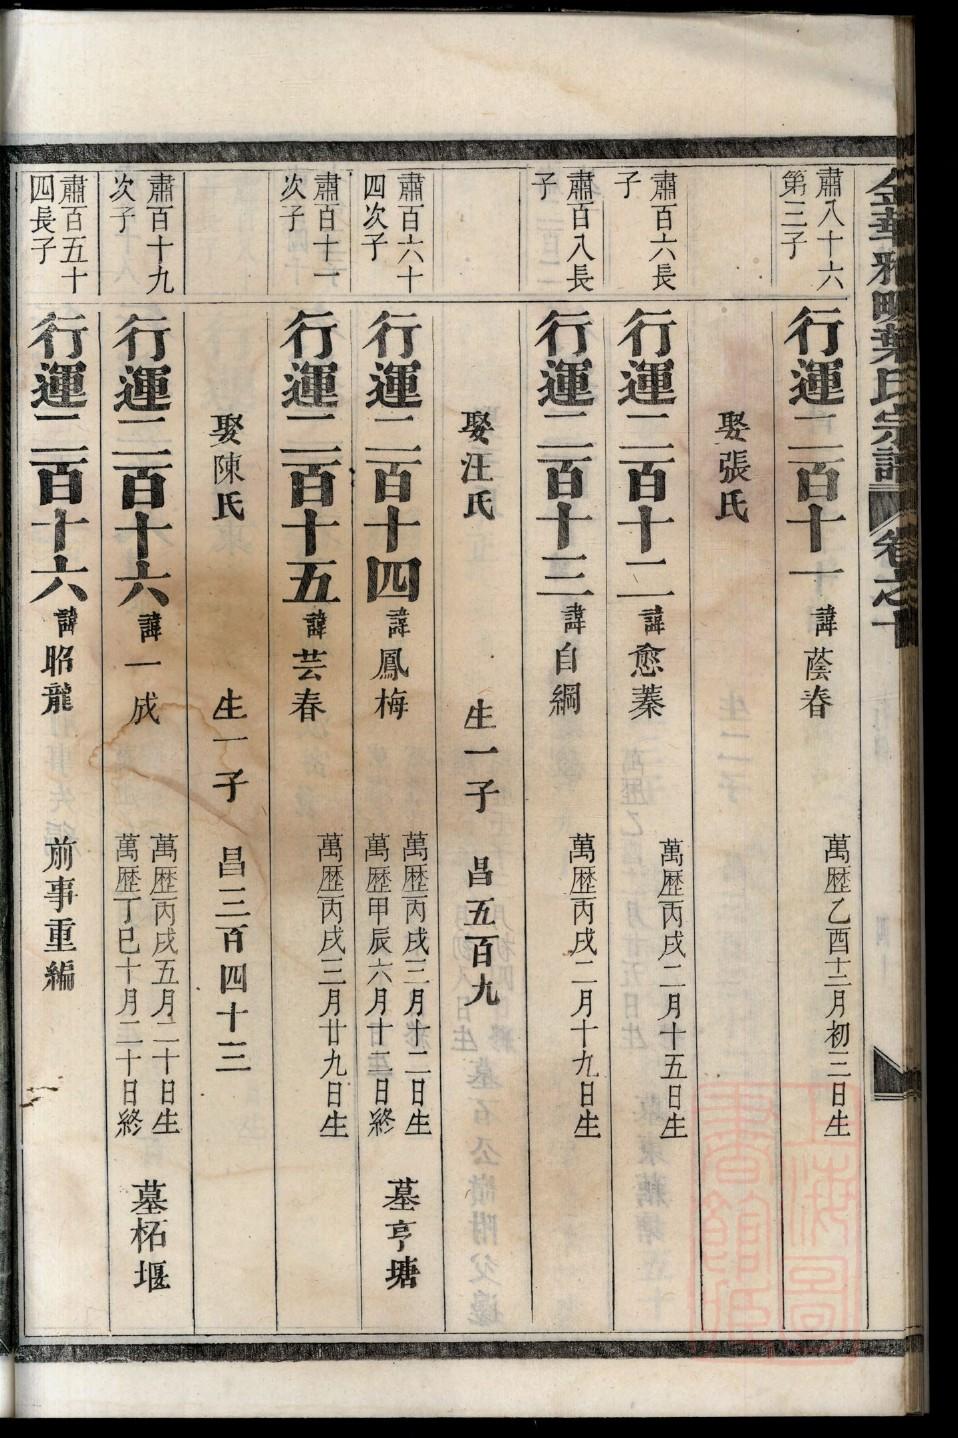 金華雅畈葉氏宗譜 卷之十
肅八十六
第三子
行運二百十一 諱蔭春 萬歷乙酉十二月初三日生
娶張氏
肅百六長
子
行運二百十二 諱愈蓁 萬歷丙戌二月十五日生
肅百八長
子
行運二百十三 諱自綱 萬歷丙戌二月十九日生
娶汪氏 生一子 昌五百九
肅百六十
四次子
行運二百十四 諱鳳梅 萬歷丙戌三月十二日生
萬歷甲辰六月十三日終
墓亨塘
肅百十一
次子
行運二百十五 諱芸春 萬歷丙戌三月廿九日生
娶陳氏 生一子 昌三百四十三
肅百十九
次子
行運二百十六 諱一成 萬歷丙戌五月二十日生
萬歷丁巳十月二十日終
墓柘堰
肅百五十
四長子
行運二百十六 諱昭龍 前事重編
上海圖
書館藏